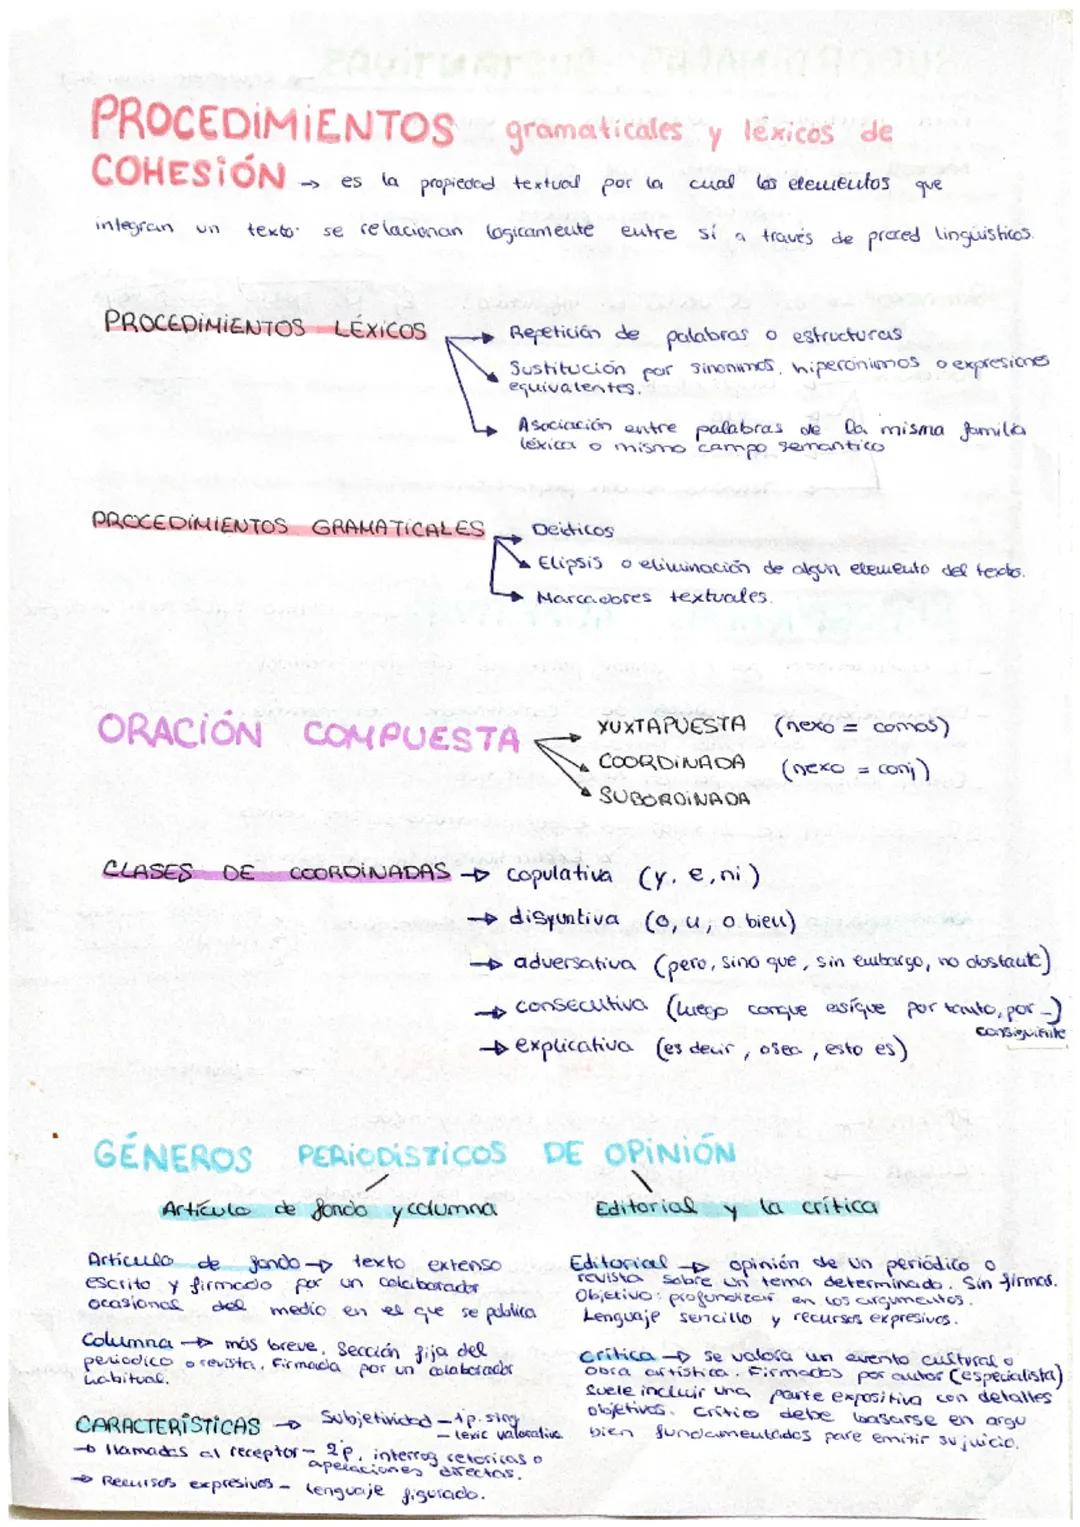 PROCEDIMIENTOS gramaticales y léxicos de
COHESIÓN → es la propiedad textual por la cual los elementos que
integran un texto se relacionan logicamente entre sí a través de proced lingüisticos.
PROCEDIMIENTOS LÉXICOS
→ Repetición de palabras o estructuras
→ Sustitución por sinonimos, hiperónimos o expresiones
equivalentes.
→ Asociación entre palabras de la misma familia
léxica o mismo campo semantico
PROCEDIMIENTOS GRAMATICALES
→ Deícticos
→ Elipsis o eliminación de algun elemento del texto.
→ Marcadores textuales.
ORACIÓN COMPUESTA
→ YUXTAPUESTA (nexo = comas)
→ COORDINADA (nexo = conj)
→ SUBORDINADA
CLASES DE COORDINADAS → copulativa (y, e, ni)
→ disyuntiva (o, u, o bien)
→ adversativa (pero, sino que, sin embargo, no obstante)
→ consecutiva (luego conque así que por tanto, por -)
consiguiente
→ explicativa (es decir, o sea, esto es)
GÉNEROS PERIODÍSTICOS DE OPINIÓN
Artículo de fondo y columna
Artículo de fondo → texto extenso
escrito y firmado por un colaborador
ocasional del medio en el que se publica
Columna → más breve. Sección fija del
periodico o revista. Firmada por un colaborador
habitual.
CARACTERÍSTICAS → Subjetividad - 1p. sing
- lexic valorativo
→ llamadas al receptor - 2p, interrog retoricas o
apelaciones directas.
→ Recursos expresivos - lenguaje figurado.
Editorial y la crítica
Editorial → opinión de un periódico o
revista sobre un tema determinado. Sin firmar.
Objetivo: profundizar en los argumentos.
Lenguaje sencillo y recursos expresivos.
Crítica → se valora un evento cultural o
obra artística. Firmados por autor (especialista)
Suele incluir una parte expositiva con detalles
objetivos. Crítico debe basarse en argu
bien fundamentados para emitir su juicio.